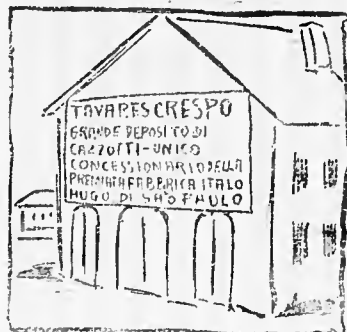 TAVARES CRESPO
GRANDE DEPOSITO DI
CAZZOTTI-UNICO
CONCESSIONARIO DELLA
PREMIATA FABBRICA ITALO
HUGO DI SAO PAULO